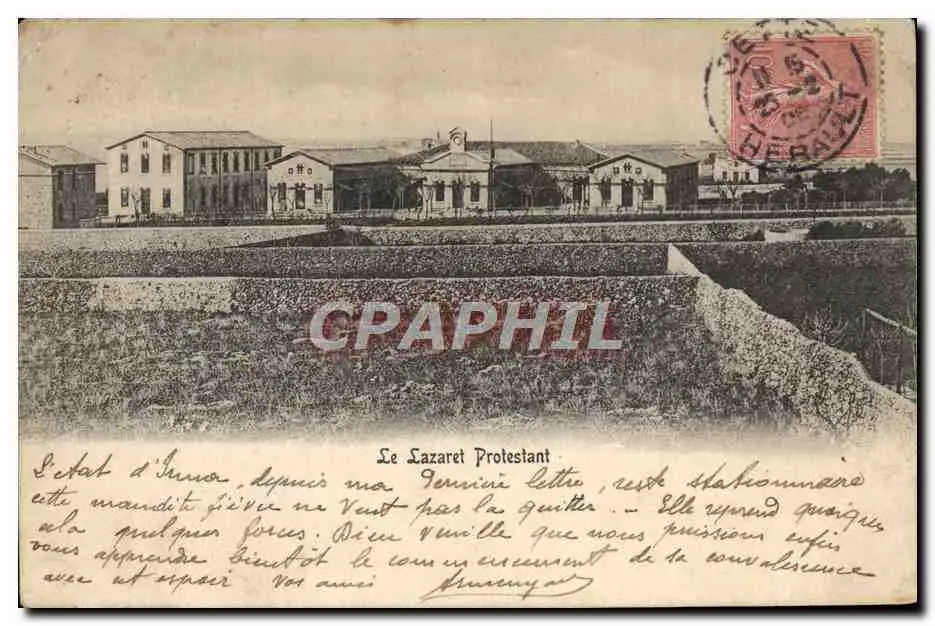 CETTE
HÉRAULT
10
CPAPHIL
Le Lazaret Protestant
L'état d'Irma, depuis ma dernière lettre, reste stationnaire
cette maudite fièvre ne veut pas la quitter. - Elle reprend quoique
cela quelques forces. Dieu veuille que nous puissions enfin
vous apprendre bientôt le commencement de sa convalescence
avec cet espoir Vos amis